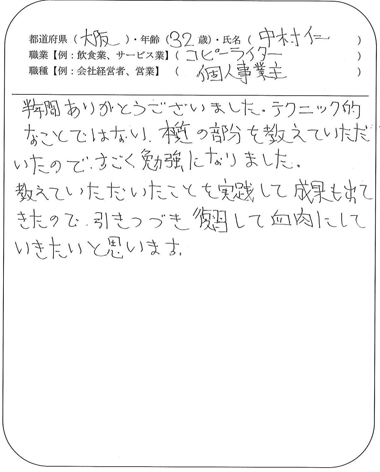 都道府県（大阪）・年齢（32歳）・氏名（中村仁）
職業【例：飲食業、サービス業】（コピーライター）
職種【例：会社経営者、営業】（個人事業主）
半年間ありがとうございました。テクニック的
なことではない、極の部分を教えていただ
いたので、すごく勉強になりました。
教えていただいたことを実践して成果も出て
きたので、引きつづき復習して血肉にして
いきたいと思います。